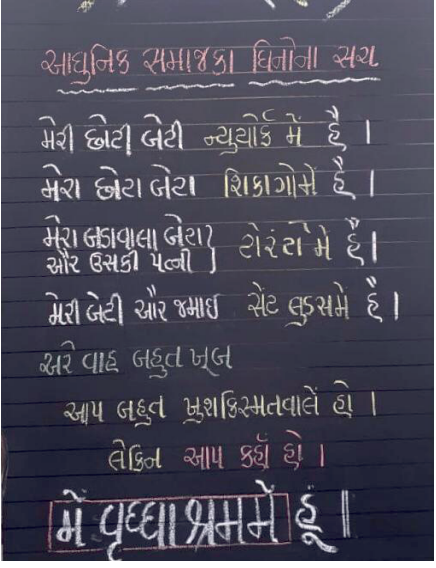 આધુનિક સમાજકા ઘિનોના સચ
મેરી છોટી બેટી ન્યુયોર્ક મેં હૈ ।
મેરા છોટા બેટા શિકાગોમેં હૈ ।
મેરા બડાવાલા બેટા
ઔર ઉસકી પત્ની } ટોરંટો મે હૈ ।
મેરી બેટી ઔર જમાઇ સેંટ લુઇસમે હૈ ।
અરે વાહ બહુત ખૂબ
આપ બહુત ખુશકિસ્મતવાલેં હો ।
લેકિન આપ કહૉં હો ।
મેં વૃધ્ધાશ્રમમે હૂં ।